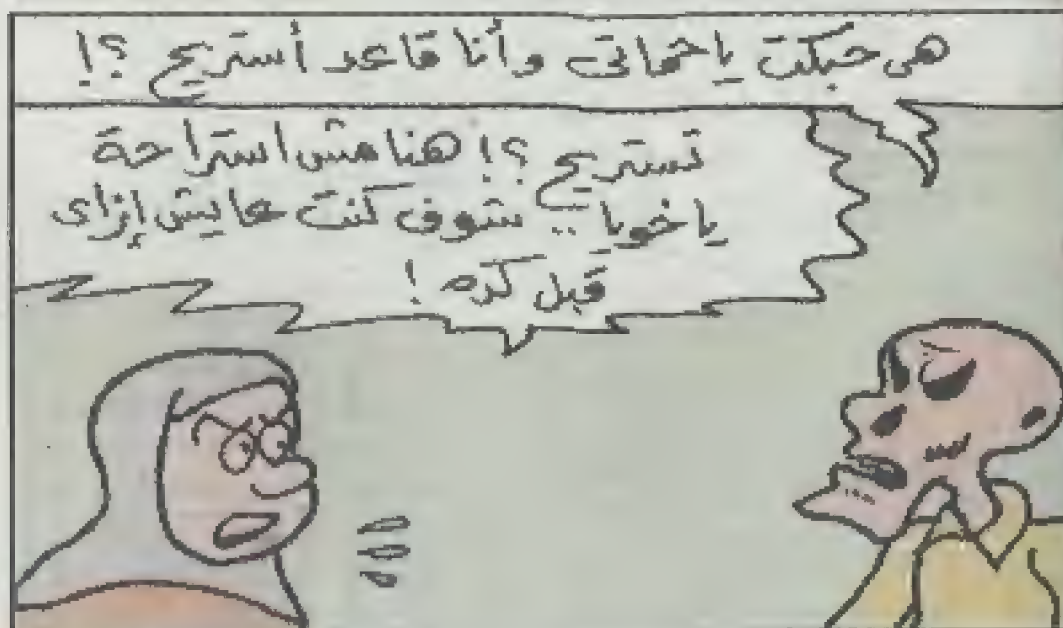 هى حبكت ياحماتى وأنا قاعد أستريح ؟!
تستريح ؟! هنا مش استراحة
ياخويا .. شوف كنت عايش إزاى
قبل كده !